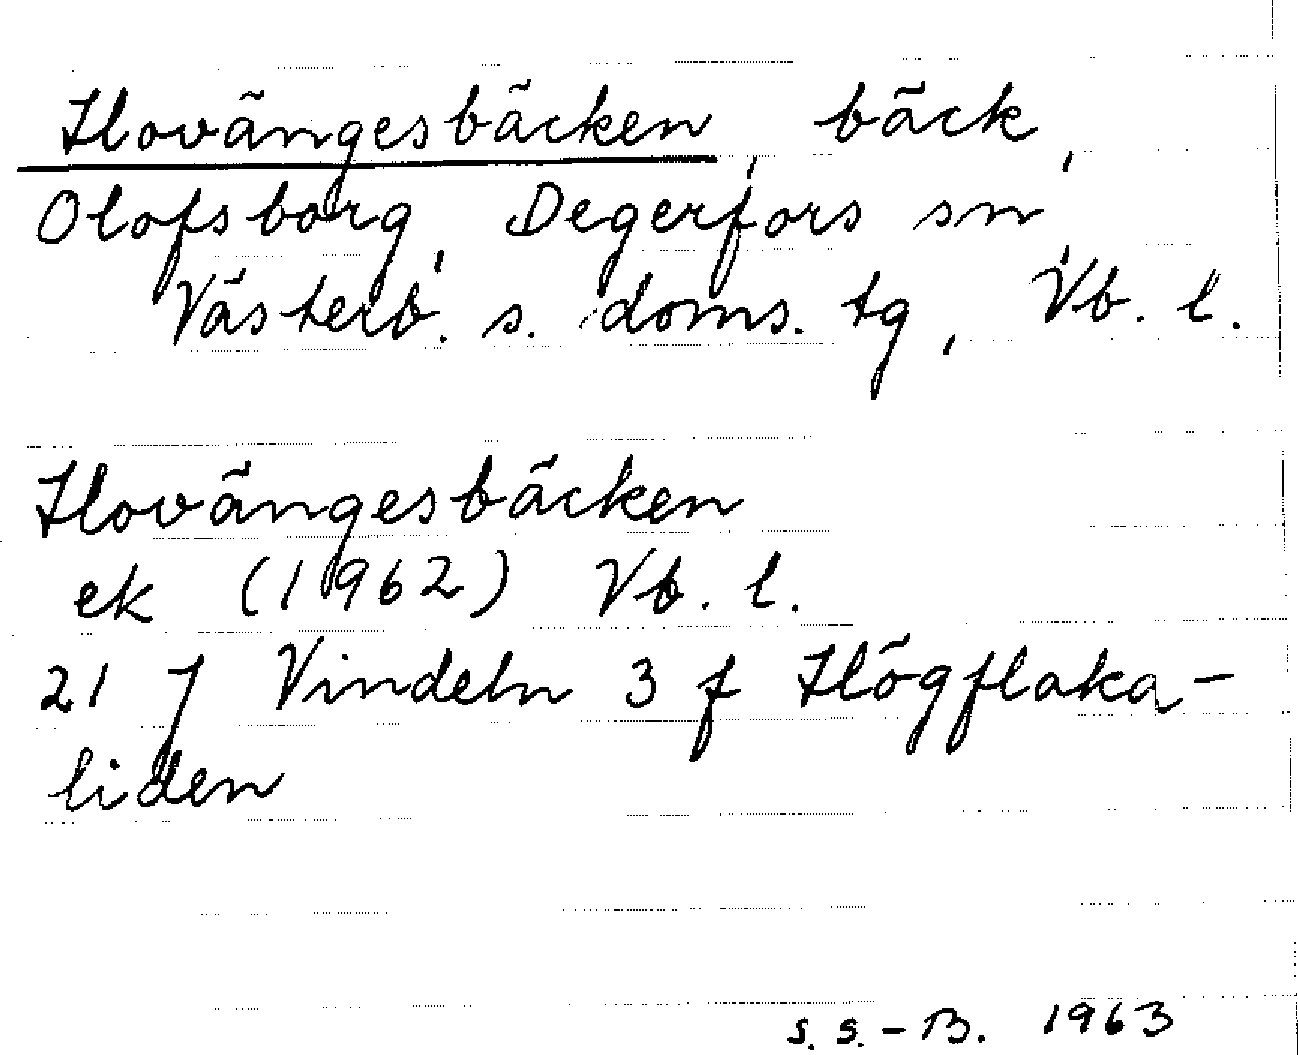 Hovängesbäcken, bäck,
Olofsborg, Degerfors sn,
Västerb. s. doms. tg, Vb. l.
Hovängesbäcken
ek (1962) Vb. l.
21 J Vindeln 3 f Högflaka-
liden
S. S. - B. 1963